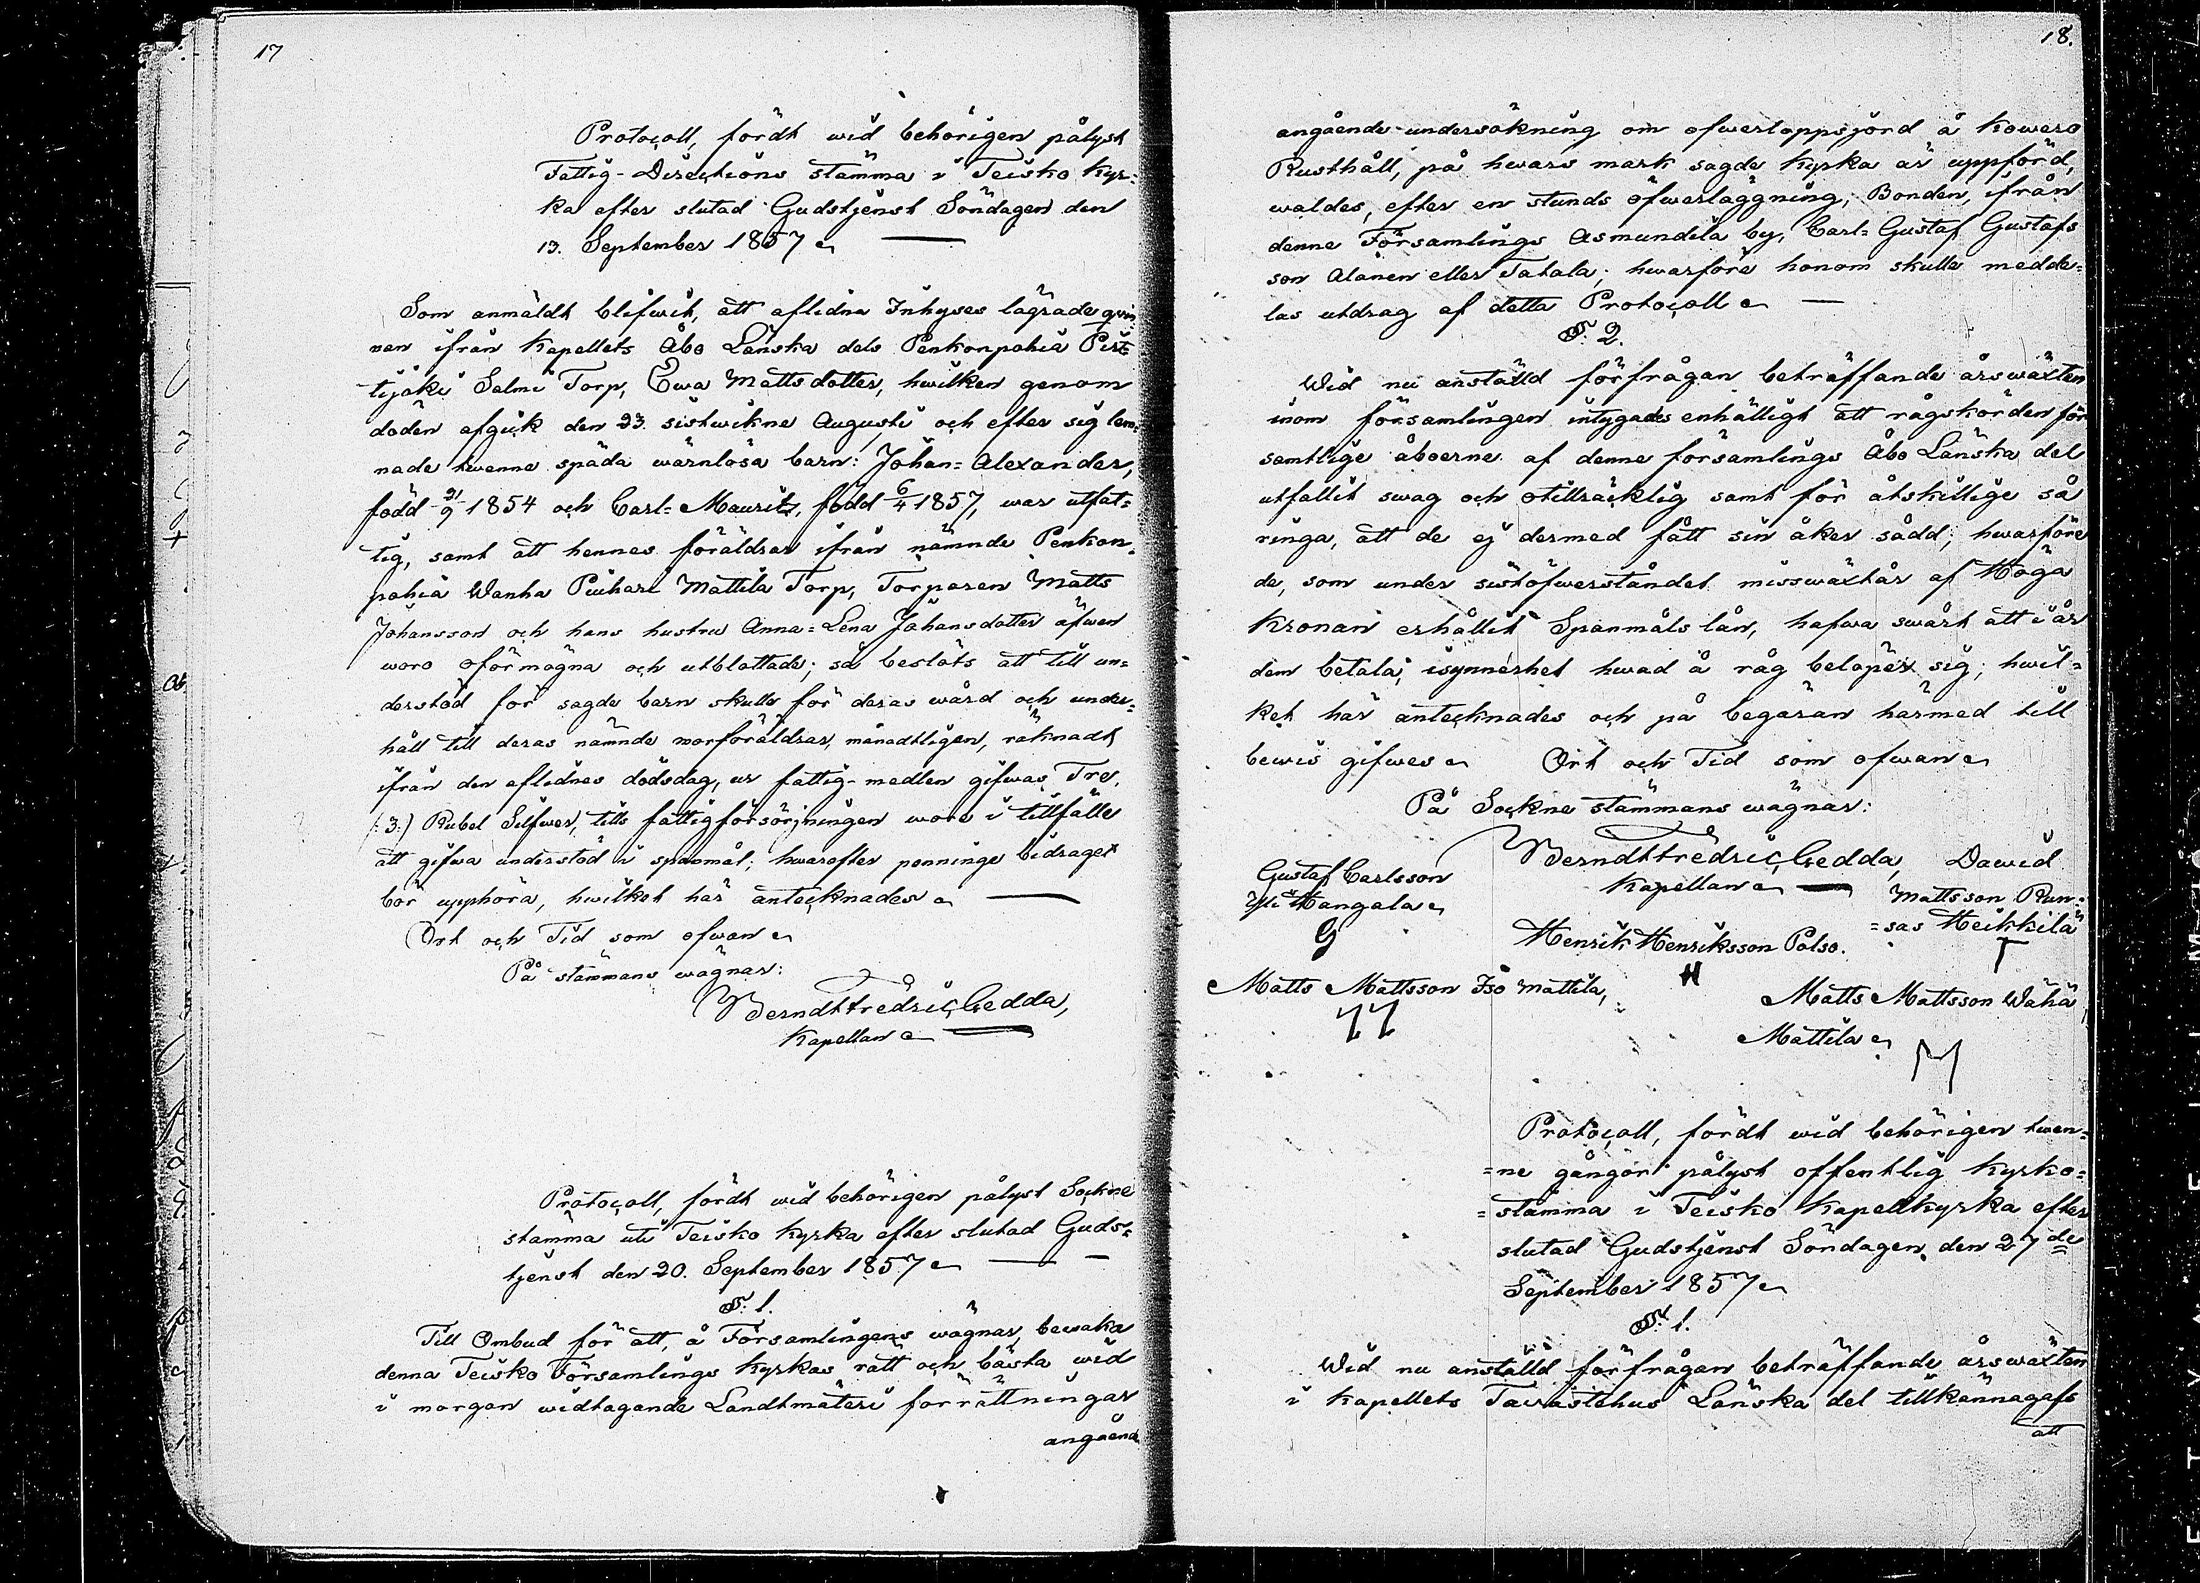 17
Protocoll, fördt wid behörigen pålyst
Fattig-Directions stämma i Teisko Kyr=
ka efter slutad Gudstjenst Söndagen den
13. September 1857.
Som anmäldt blifwit, att aflidna Inhyses lägrade qvin
nan ifrån Kapellets Åbo Länska dels Penkonpohia Pirt=
tijoki Salmi Torp, Ewa Mattsdotter, hwilken genom
döden afgick den 23. sistwikne Augusti och efter sig lem=
nade twenne späda wärnlösa barn: Johan=Alexander,
född 21/9 1854 och Carl=Maurits, född 6/4 1857, war utfat=
tig, samt att hennes föräldrar ifrån nämnde Penkon=
pohia Wanha Puihari Mattila Torp, Torparen Matts
Johansson och hans hustru Anna=Lena Johansdotter äfwen
woro oförmögna och utblottade; så beslöts att till un=
derstöd för sagde barn skulle för deras wård och under=
håll till deras nämnde morföräldrar, månadtligen, räknadt
ifrån den aflidnes dödsdag, ur fattig-medlen gifwas Tre,
(:3:) Rubel Silfwer, tills fattigförsörjningen wore i tillfälle
att gifwa understöd i spanmål; hwarefter penninge bidraget
bör upphöra, hwilket här antecknades.
Ort och Tid som ofwan.
På stämmans wägnar:
Berndt Fredric Gedda,
Kapellan.
Protocoll, fördt wid behörigen pålyst Sockne
stämma uti Teisko Kyrka efter slutad Guds=
tjenst den 20. September 1857.
§. 1.
Till Ombud för att, å Församlingens wägnar, bewaka
denna Teisko Församlings Kyrkas rätt och bästa wid
i morgon widtagande Landtmäteri förrättningar
angående
18.
angående undersökning om ofwerloppsjord å Kowero
Rusthåll, på hwars mark sagde Kyrka är uppförd,
waldes, efter en stunds öfwerläggning, Bonden, ifrån
denne Församlings Asmundila by, Carl=Gustaf Gustafs
son Alanen eller Tatala; hwarföre honom skulle medde=
las utdrag af detta Protocoll.
§. 2.
Wid nu anställd förfrågan beträffande årswäxten
inom församlingen intygades enhälligt att rågskörden för
samtlige åboerne af denne församlings Åbo Länska del
utfallit swag och otillräcklig samt för åtskillige så
ringa, att de ej dermed fått sin åker sådd; hwarföre
de, som under sistöfwerståndet misswäxtår af Höga
Kronan erhållit Spanmåls lån, hafwa swårt att i år
dem betala, isynnerhet hwad å råg belöper sig; hwil=
ket här antecknades och på begäran härmed till
bewis gifwes. Ort och Tid som ofwan.
På Sockne stämmans wägnar:
Berndt Fredric Gedda,
Kapellan.
Gustaf Carlsson
Yli Hangala.
G
Dawid
Mattsson Run=
=sas Heikkilä
T
Henrik Henriksson Polso.
H
Matts Mattsson Iso Mattila,
Matts Mattsson Wähä
Mattila.
M
Protocoll, fördt wid behörigen twen=
=ne gångor pålyst offentlig Kyrko=
=stämma i Teisko Kapellkyrka efter
slutad Gudstjenst Söndagen den 27de
September 1857.
§. 1.
Wid nu anställd förfrågan beträffande årswäxten
i Kapellets Tawastehus Länska del tillkännagafs
att